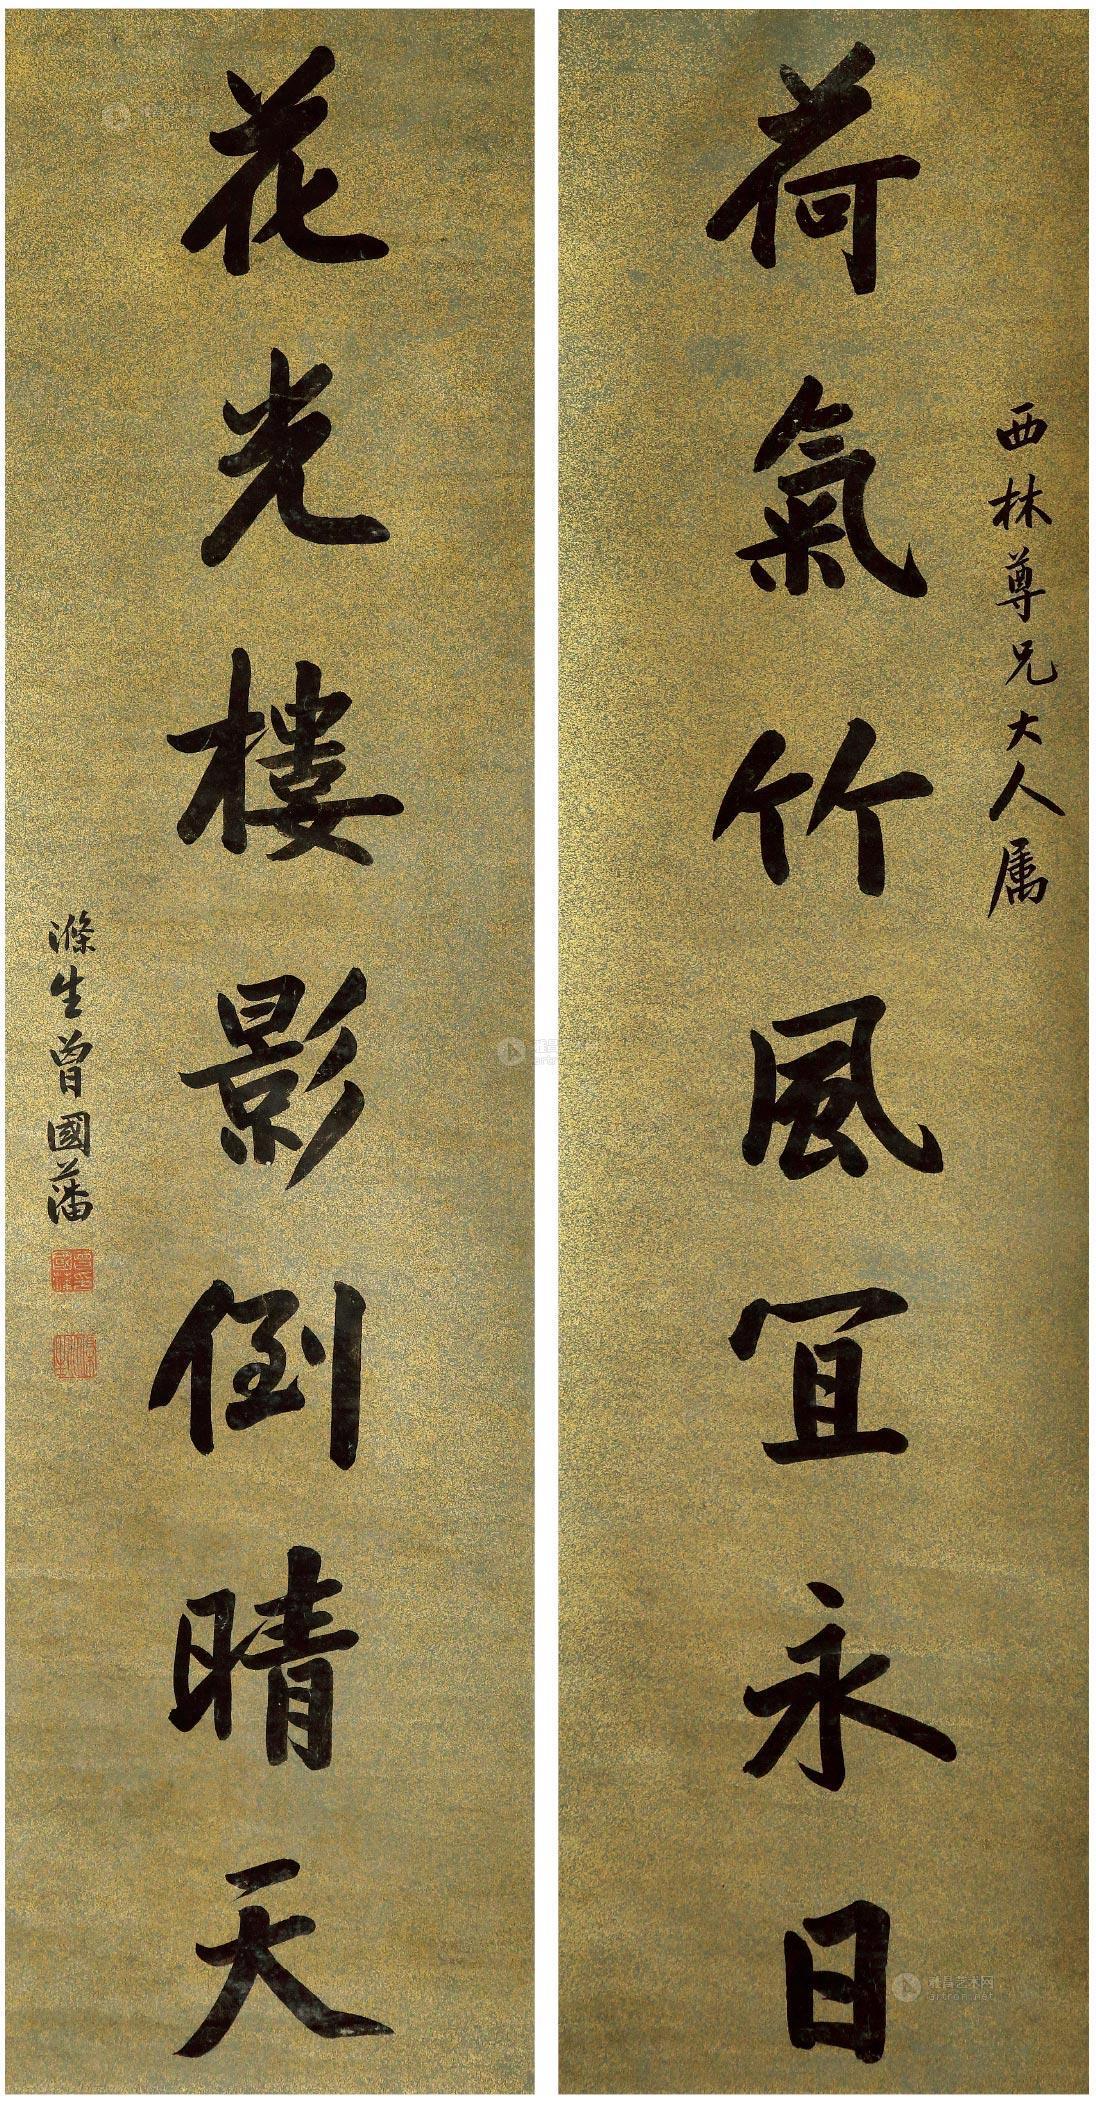 西林尊兄大人属
荷氣竹風宜永日
花光樓影倒晴天
滌生曾國藩
雅昌艺术网
artron.net